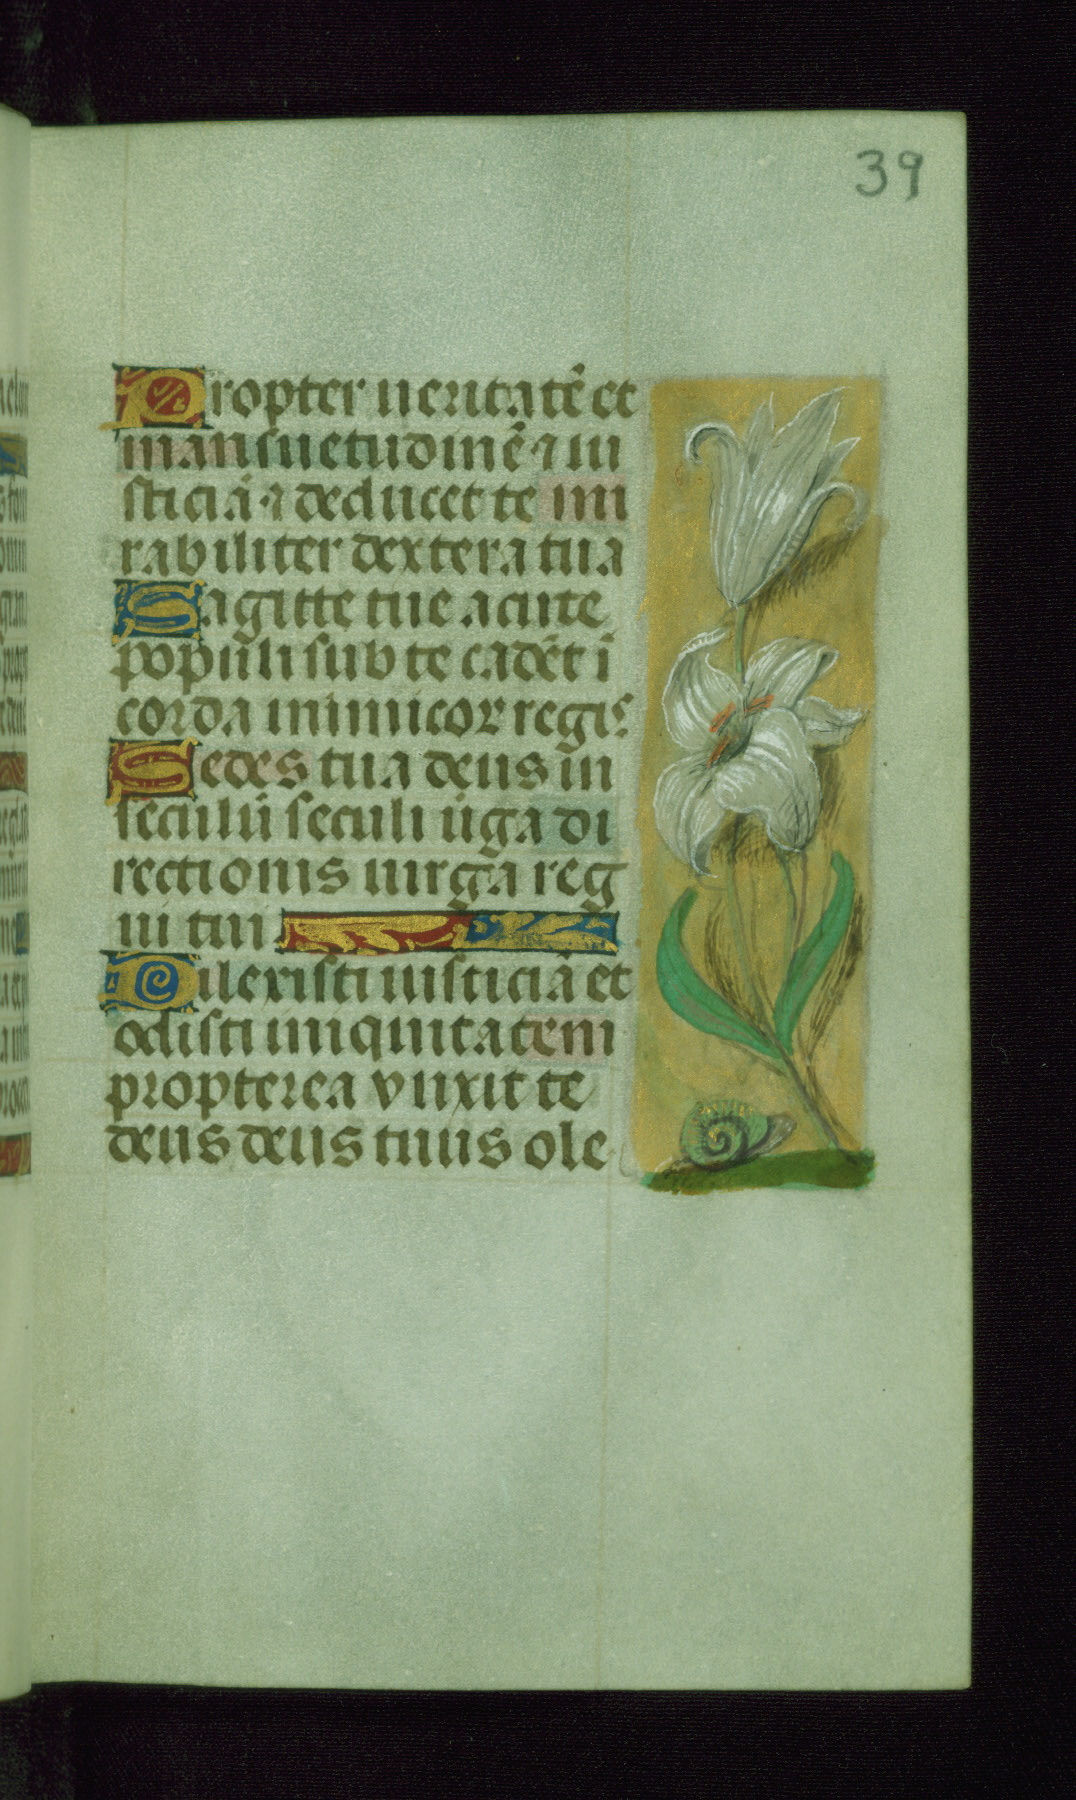 39
Propter ueritatē et
mansuetudinē ⁊ iu
sticiā ⁊ deducet te mi
rabiliter dextera tua
Sagitte tue acute
populi sub te cadēt ī
corda inimicoꝝ regis
Sedes tua deus in
seculū seculi uirga di
rectionis uirga reg
ni tui
Dilexisti iusticiā et
odisti iniquitatem
propterea vnxit te
deus deus tuus ole